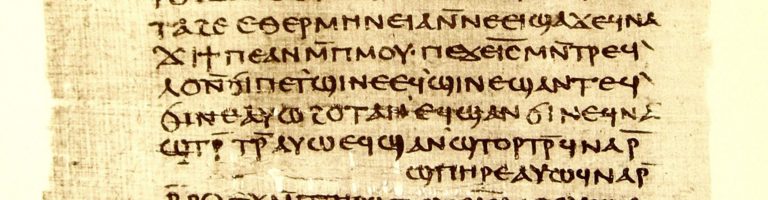 ⲧⲁϩⲉⲉⲑⲉⲣⲙⲏⲛⲉⲓⲁⲛ̄ⲛⲉⲉⲓϣⲁϫⲉϥⲛⲁ
ϫⲓϯⲡⲉⲁⲛⲙ̄ⲡⲙⲟⲩ·ⲡⲉϫⲉⲓ̄ⲥ̄ⲙⲛ̄ⲧⲣⲉϥ`
ⲗⲟⲛ̄ϭⲓⲡⲉⲧ`ϣⲓⲛⲉⲉϥ`ϣⲓⲛⲉϣⲁⲛⲧⲉϥ`
ϭⲓⲛⲉⲁⲩⲱϩⲟⲧⲁⲛⲉϥϣⲁⲛϭⲓⲛⲉϥⲛⲁ
ϣⲧⲣ̄ⲧⲣ̄ⲁⲩⲱⲉϥϣⲁⲛ`ϣⲧⲟⲣⲧⲣ̄ϥⲛⲁⲣ̄
ϣⲡⲏⲣⲉⲁⲩⲱϥⲛⲁⲣ̄